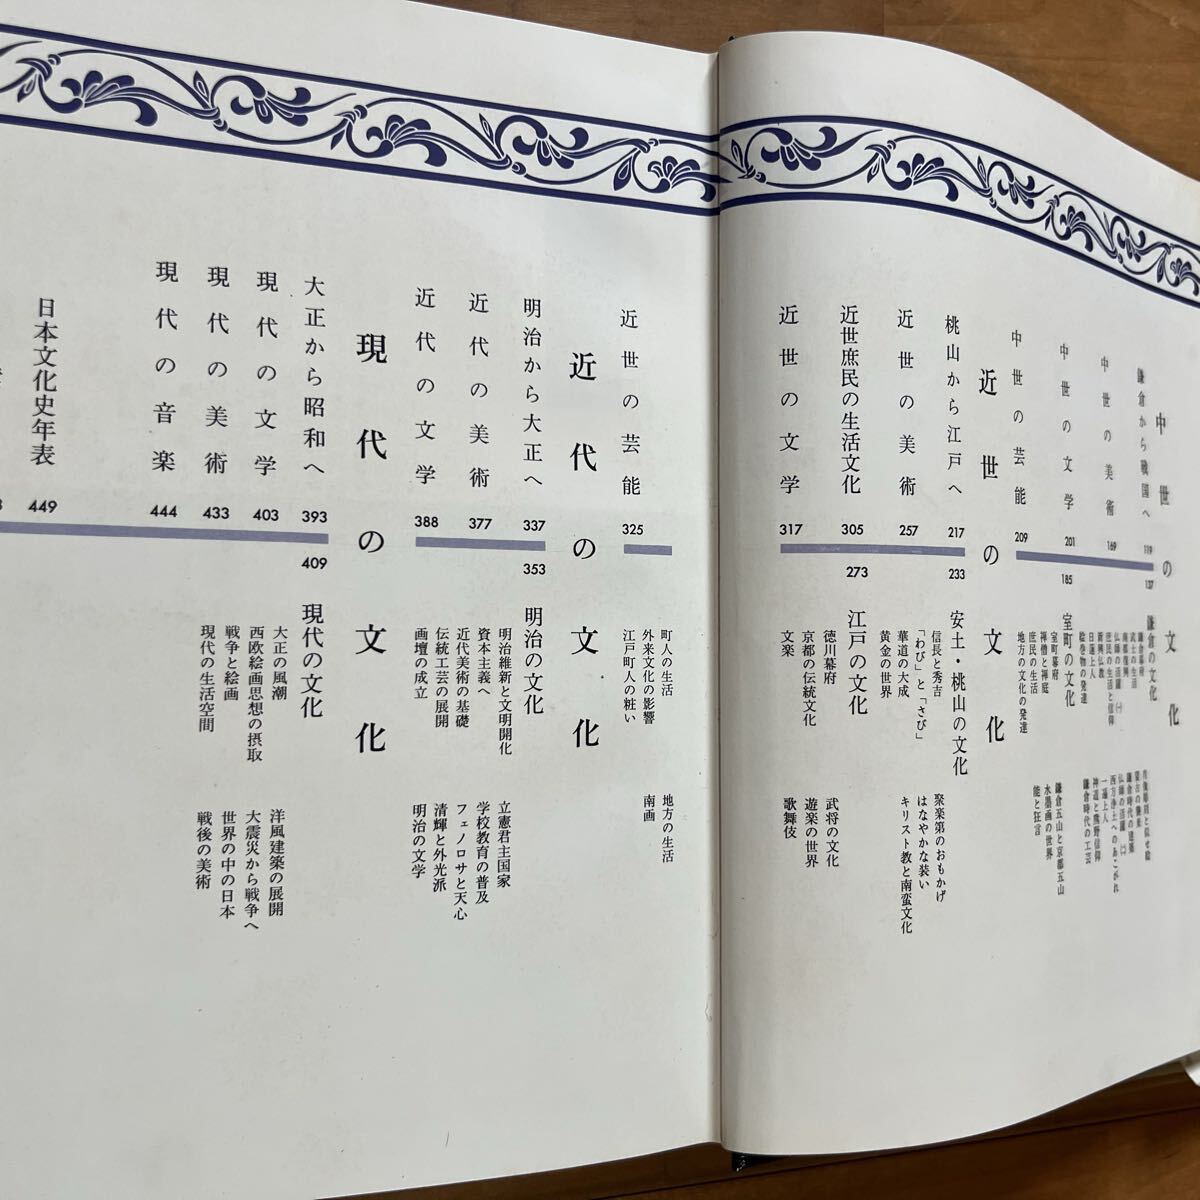 中世の文化
鎌倉から戦国へ
119
中世の美術
169
中世の文学
201
中世の芸能
209
137
鎌倉の文化
鎌倉幕府
武士の生活
南都復興
仏師の活躍(一)
庶民の生活と信仰
新興仏教
日蓮上人
絵巻物の発達
蒙古の襲来
鎌倉時代の建築
仏師の活躍(二)
西方浄土へのあこがれ
一遍上人
神道と熊野信仰
鎌倉時代の工芸
185
室町の文化
室町幕府
禅僧と禅庭
庶民の生活
地方の文化の発達
鎌倉五山と京都五山
水墨画の世界
能と狂言
近世の文化
桃山から江戸へ
217
近世の美術
257
近世庶民の生活文化
305
近世の文学
317
233
安土・桃山の文化
信長と秀吉
「わび」と「さび」
華道の大成
黄金の世界
聚楽第のおもかげ
はなやかな装い
キリスト教と南蛮文化
273
江戸の文化
徳川幕府
京都の伝統文化
文楽
武将の文化
遊楽の世界
歌舞伎
近世の芸能
325
町人の生活
外来文化の影響
江戸町人の粧い
地方の生活
南画
近代の文化
明治から大正へ
337
近代の美術
377
近代の文学
388
353
明治の文化
明治維新と文明開化
資本主義へ
近代美術の基礎
伝統工芸の展開
画壇の成立
立憲君主国家
学校教育の普及
フェノロサと天心
清輝と外光派
明治の文学
現代の文化
大正から昭和へ
393
現代の文学
403
現代の美術
433
現代の音楽
444
409
現代の文化
大正の風潮
西欧絵画思想の摂取
戦争と絵画
現代の生活空間
洋風建築の展開
大震災から戦争へ
世界の中の日本
戦後の美術
日本文化史年表
449